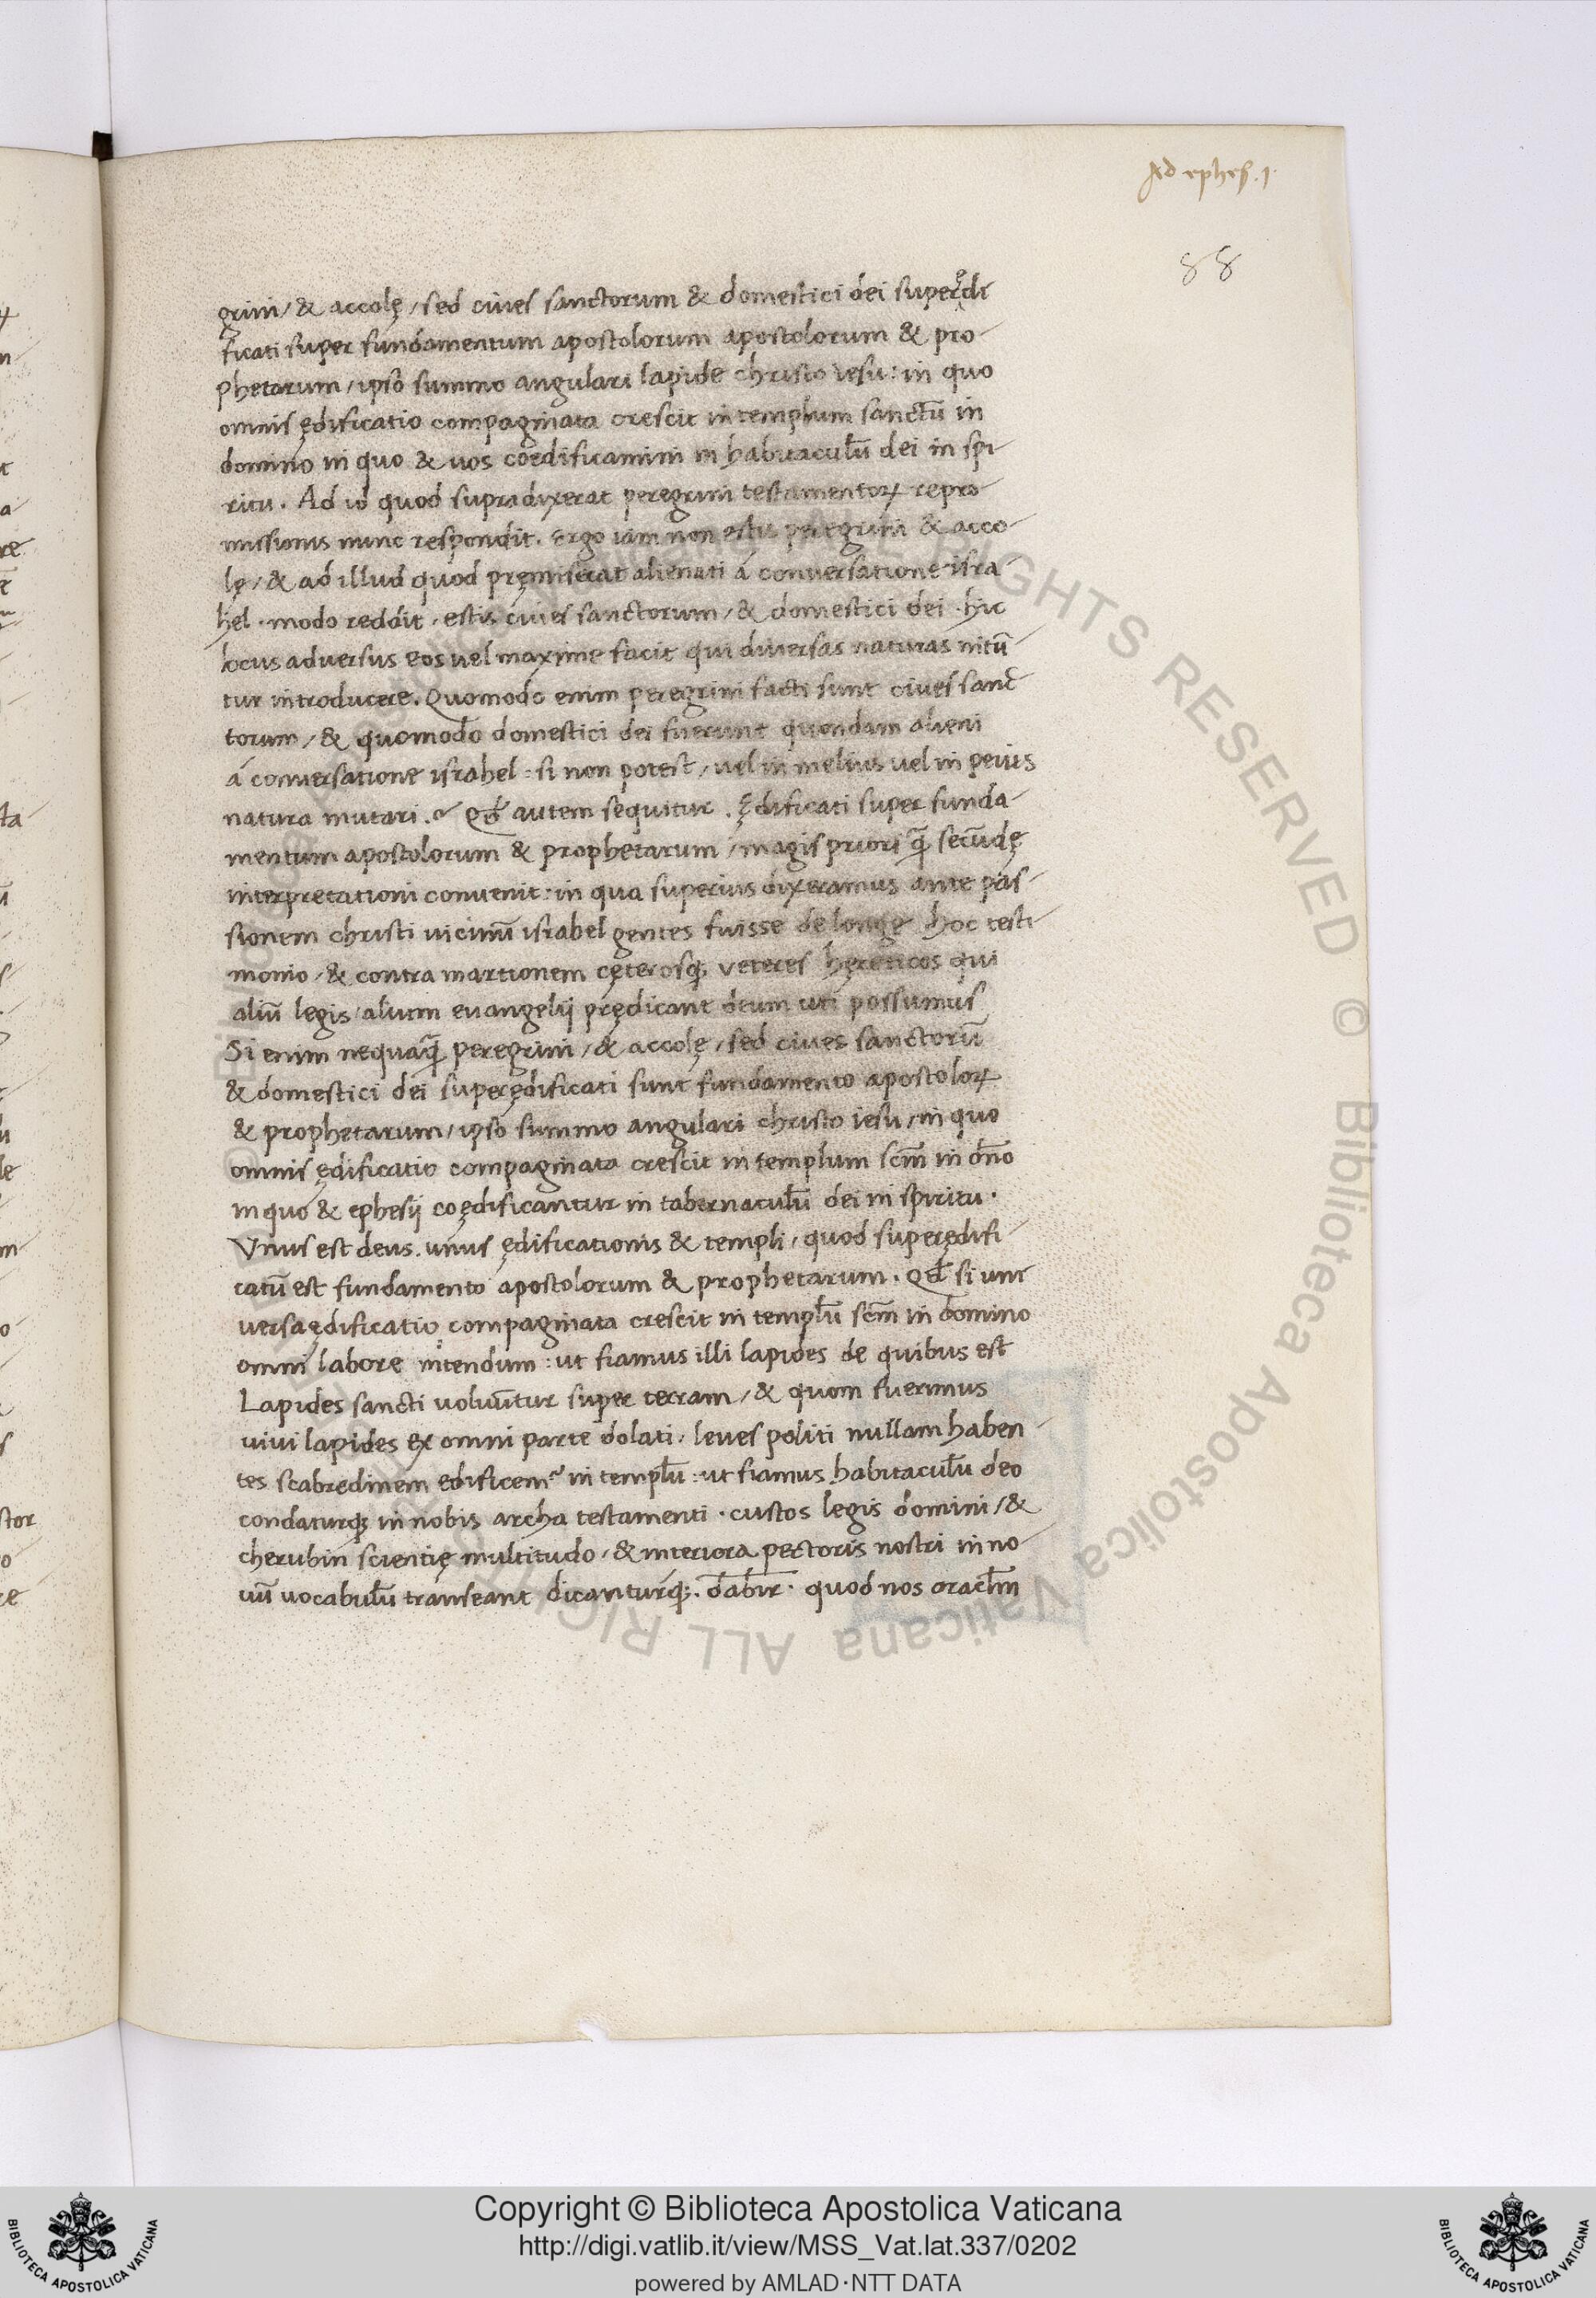 Ad ephes. 1.
88
grini / & accolę / sed ciues sanctorum & domestici dei superędi
ficati super fundamentum apostolorum apostolorum & pro-
phetarum / ipso summo angulari lapide christo iesu : in quo
omnis ędificatio compaginata crescit in templum sanctū in
domino in quo & uos coędificamini in habitaculū dei in spi-
ritu . Ad id quod supra dixerat peregrini testamentoꝝ repro-
missionis nunc respondit . Ergo iam non estis peregrini & acco-
lę / & ad illud quod pręmiserat alienati á conuersatione isra-
hel . modo reddit . estis ciues sanctorum / & domestici dei . hic
locus aduersus eos uel maxime facit qui diuersas naturas nitū-
tur introducere . Quomodo enim peregrini facti sunt ciues sanc-
torum / & quomodo domestici dei fuerunt quondam alieni
á conuersatione israhel : si non potest / uel in melius uel in peius
natura mutari . Qđ autem sequitur . Ędificati super funda-
mentum apostolorum & prophetarum / magis priori q̄ secūdę
interpretationi conuenit : in qua superius dixeramus ante pas-
sionem christi uicinū israhel gentes fuisse de longe hoc testi-
monio / & contra martionem cęterosq; veteres hęreticos qui
aliū legis / alium euangelij prędicant deum uti possumus
Si enim nequaq̄ peregrini / & accolę / sed ciues sanctorū
& domestici dei superędificati sunt fundamento apostoloꝝ
& prophetarum / ipso summo angulari christo iesu / in quo
omnis ędificatio compaginata crescit in templum scm̄ in dn̄o
in quo & ephesij coędificantur in tabernaculū dei in spiritu .
Vnus est deus . unus ędificationis & templi / quod superędifi-
catū est fundamento apostolorum & prophetarum . Qđ si uni
uersa ędificatio compaginata crescit in templū scm̄ in domino
omni labore nitendum : ut fiamus illi lapides de quibus est
Lapides sancti uoluūtur super terram / & quom fuerimus
uiui lapides ex omni parte dolati / leues politi nullam haben-
tes scabredinem edificem᷒ in templū : ut fiamus habitaculū deo
condaturq; in nobis archa testamenti . custos legis domini / &
cherubin scientię multitudo / & interiora pectoris nostri in no-
uū uocabulū transeant dicanturq; . dabir . quod nos oraclm̄
Copyright © Biblioteca Apostolica Vaticana
http://digi.vatlib.it/view/MSS_Vat.lat.337/0202
powered by AMLAD·NTT DATA